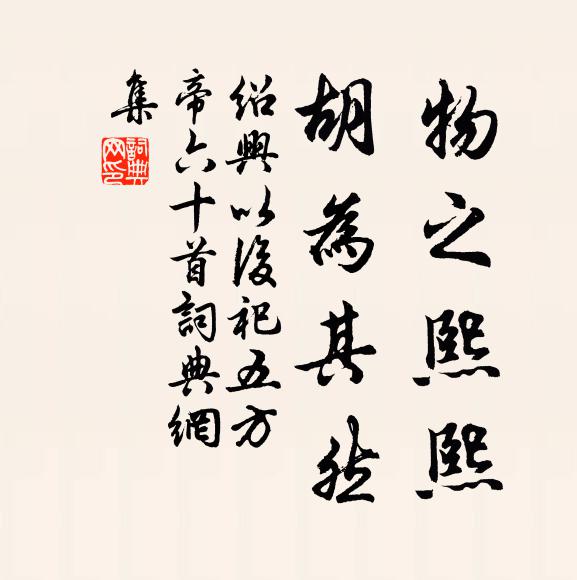 物之熙熙
胡為其然
紹興以後祀五方
帝六十首詞典網
集
詞典
网印